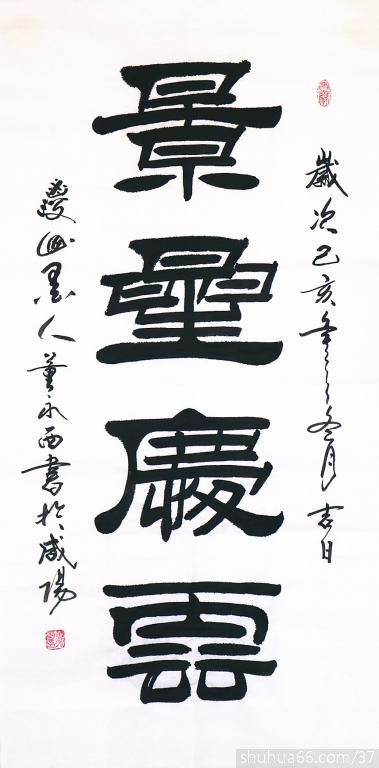 歲次己亥年冬月吉日
景星慶雲
山墨人董永西書於咸陽
shuhua66.com/37